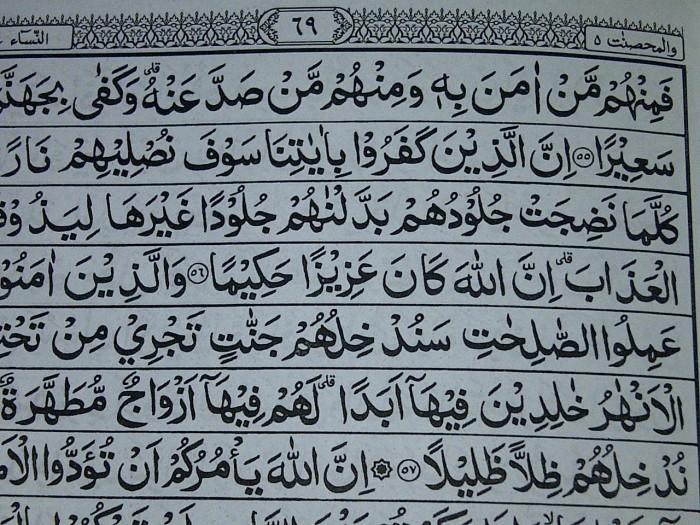 والمحصنٰت ٥ ٦٩ النّساء
فَمِنْهُمْ مَّنْ اٰمَنَ بِهٖ وَمِنْهُمْ مَّنْ صَدَّ عَنْهُ ؕ وَكَفٰى بِجَهَنَّمَ
سَعِيْرًا ۝٥٥ اِنَّ الَّذِيْنَ كَفَرُوْا بِاٰيٰتِنَا سَوْفَ نُصْلِيْهِمْ نَارًا
كُلَّمَا نَضِجَتْ جُلُوْدُهُمْ بَدَّلْنٰهُمْ جُلُوْدًا غَيْرَهَا
الْعَذَابَ ؕ اِنَّ اللّٰهَ كَانَ عَزِيْزًا حَكِيْمًا ۝٥٦ وَالَّذِيْنَ اٰمَنُوْا
عَمِلُوا الصّٰلِحٰتِ سَنُدْخِلُهُمْ جَنّٰتٍ تَجْرِيْ مِنْ
الْاَنْهٰرُ خٰلِدِيْنَ فِيْهَاۤ اَبَدًا ؕ لَهُمْ فِيْهَاۤ اَزْوَاجٌ مُّطَهَّرَةٌ
نُدْخِلُهُمْ ظِلًّا ظَلِيْلًا ۝٥٧ اِنَّ اللّٰهَ يَاْمُرُكُمْ اَنْ تُؤَدُّوا